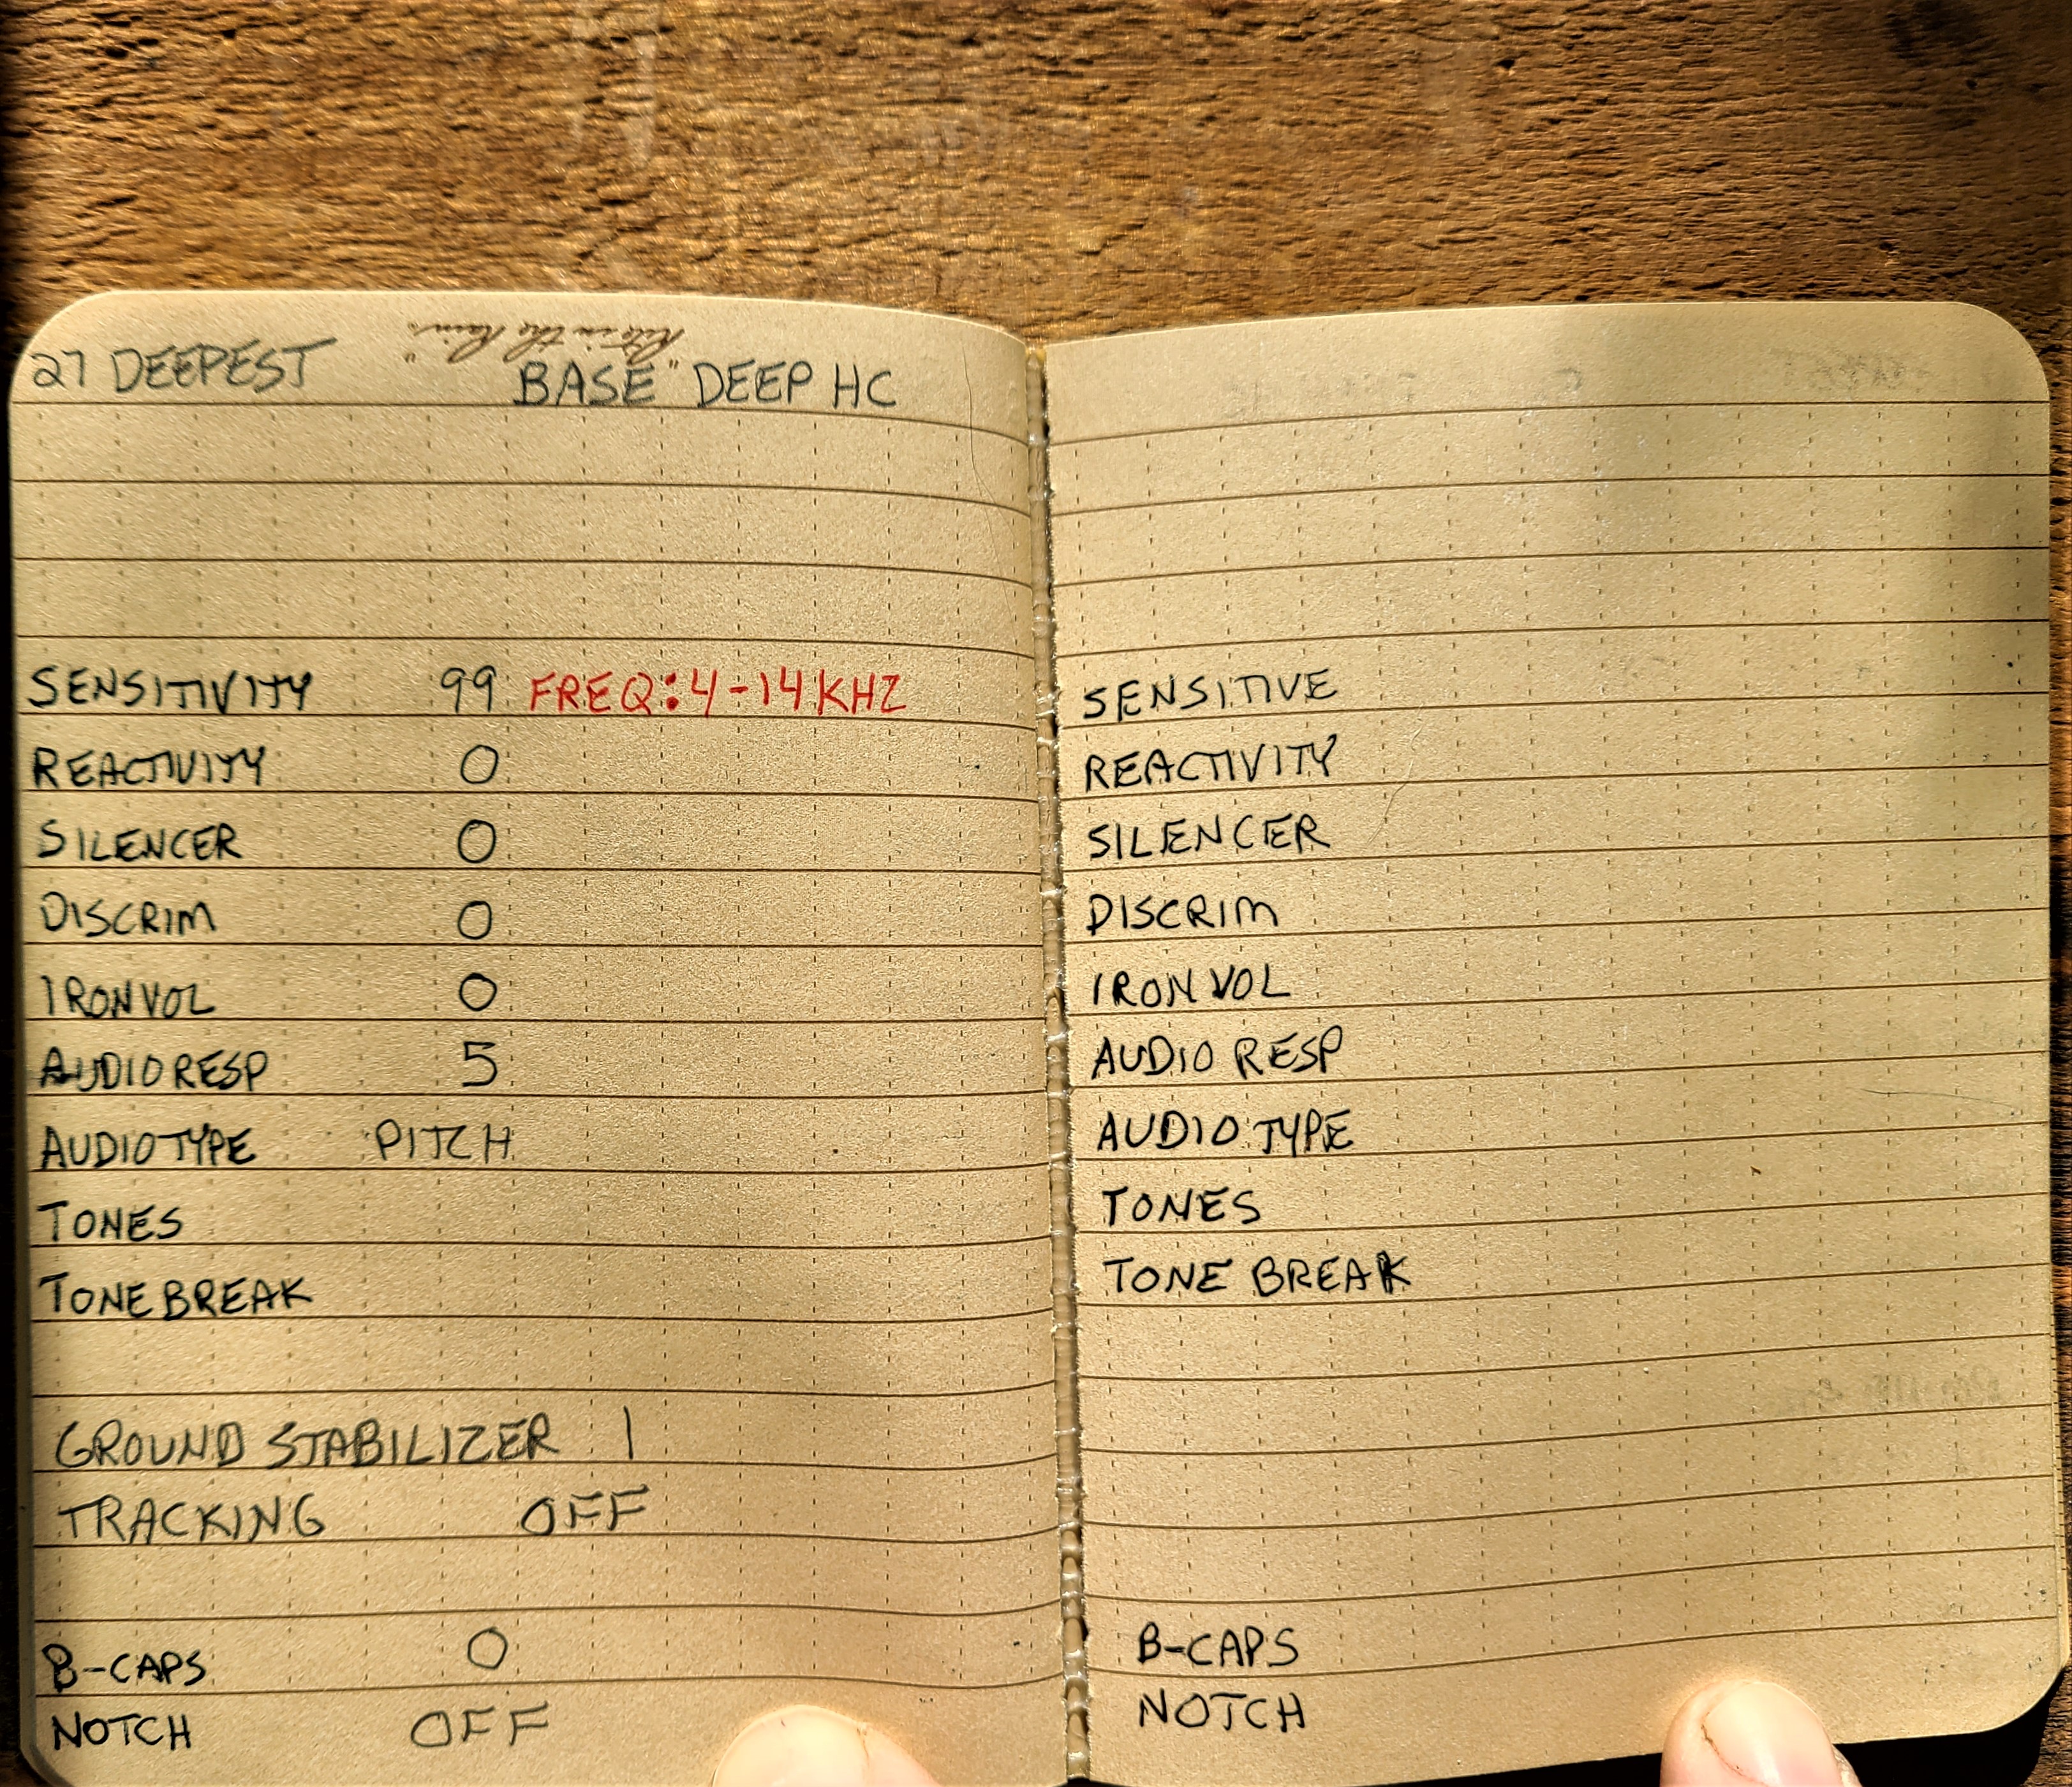 "Rite in the Rain"
27 DEEPEST BASE DEEP HC
SENSITIVITY 99 FREQ: 4-14 KHZ
REACTIVITY 0
SILENCER 0
DISCRIM 0
IRON VOL 0
AUDIO RESP 5
AUDIO TYPE PITCH
TONES
TONE BREAK
GROUND STABILIZER 1
TRACKING OFF
B-CAPS 0
NOTCH OFF
SENSITIVE
REACTIVITY
SILENCER
DISCRIM
IRON VOL
AUDIO RESP
AUDIO TYPE
TONES
TONE BREAK
B-CAPS
NOTCH